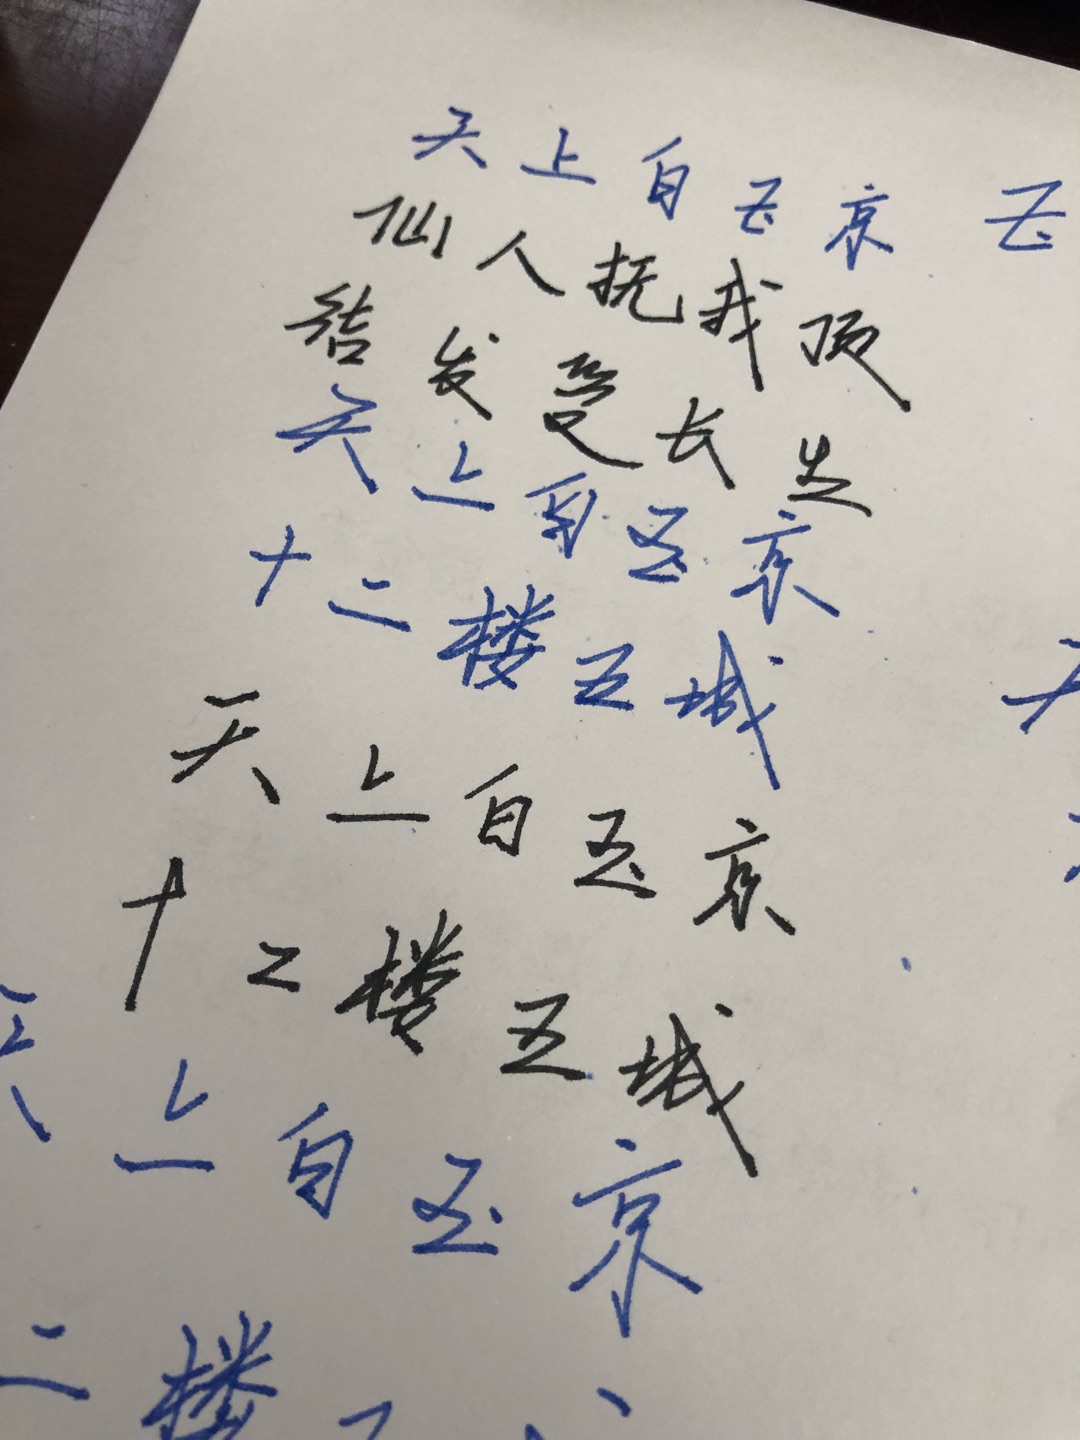 天上白玉京 玉
仙人抚我顶
结发受长生
天上白玉京
十二楼五城
天
天上白玉京
十二楼五城
天上白玉京
二楼